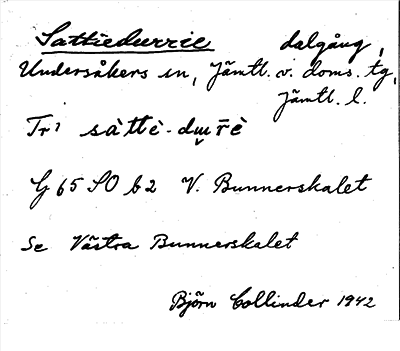 Sattiedurrie dalgång,
Undersåkers sn, Jämtl. v. doms. tg,
Jämtl. l.
Tr? sàttè-du̯r̄è
G 65 SO b 2 V. Bunnerskalet
Se Västra Bunnerskalet
Björn Collinder 1942